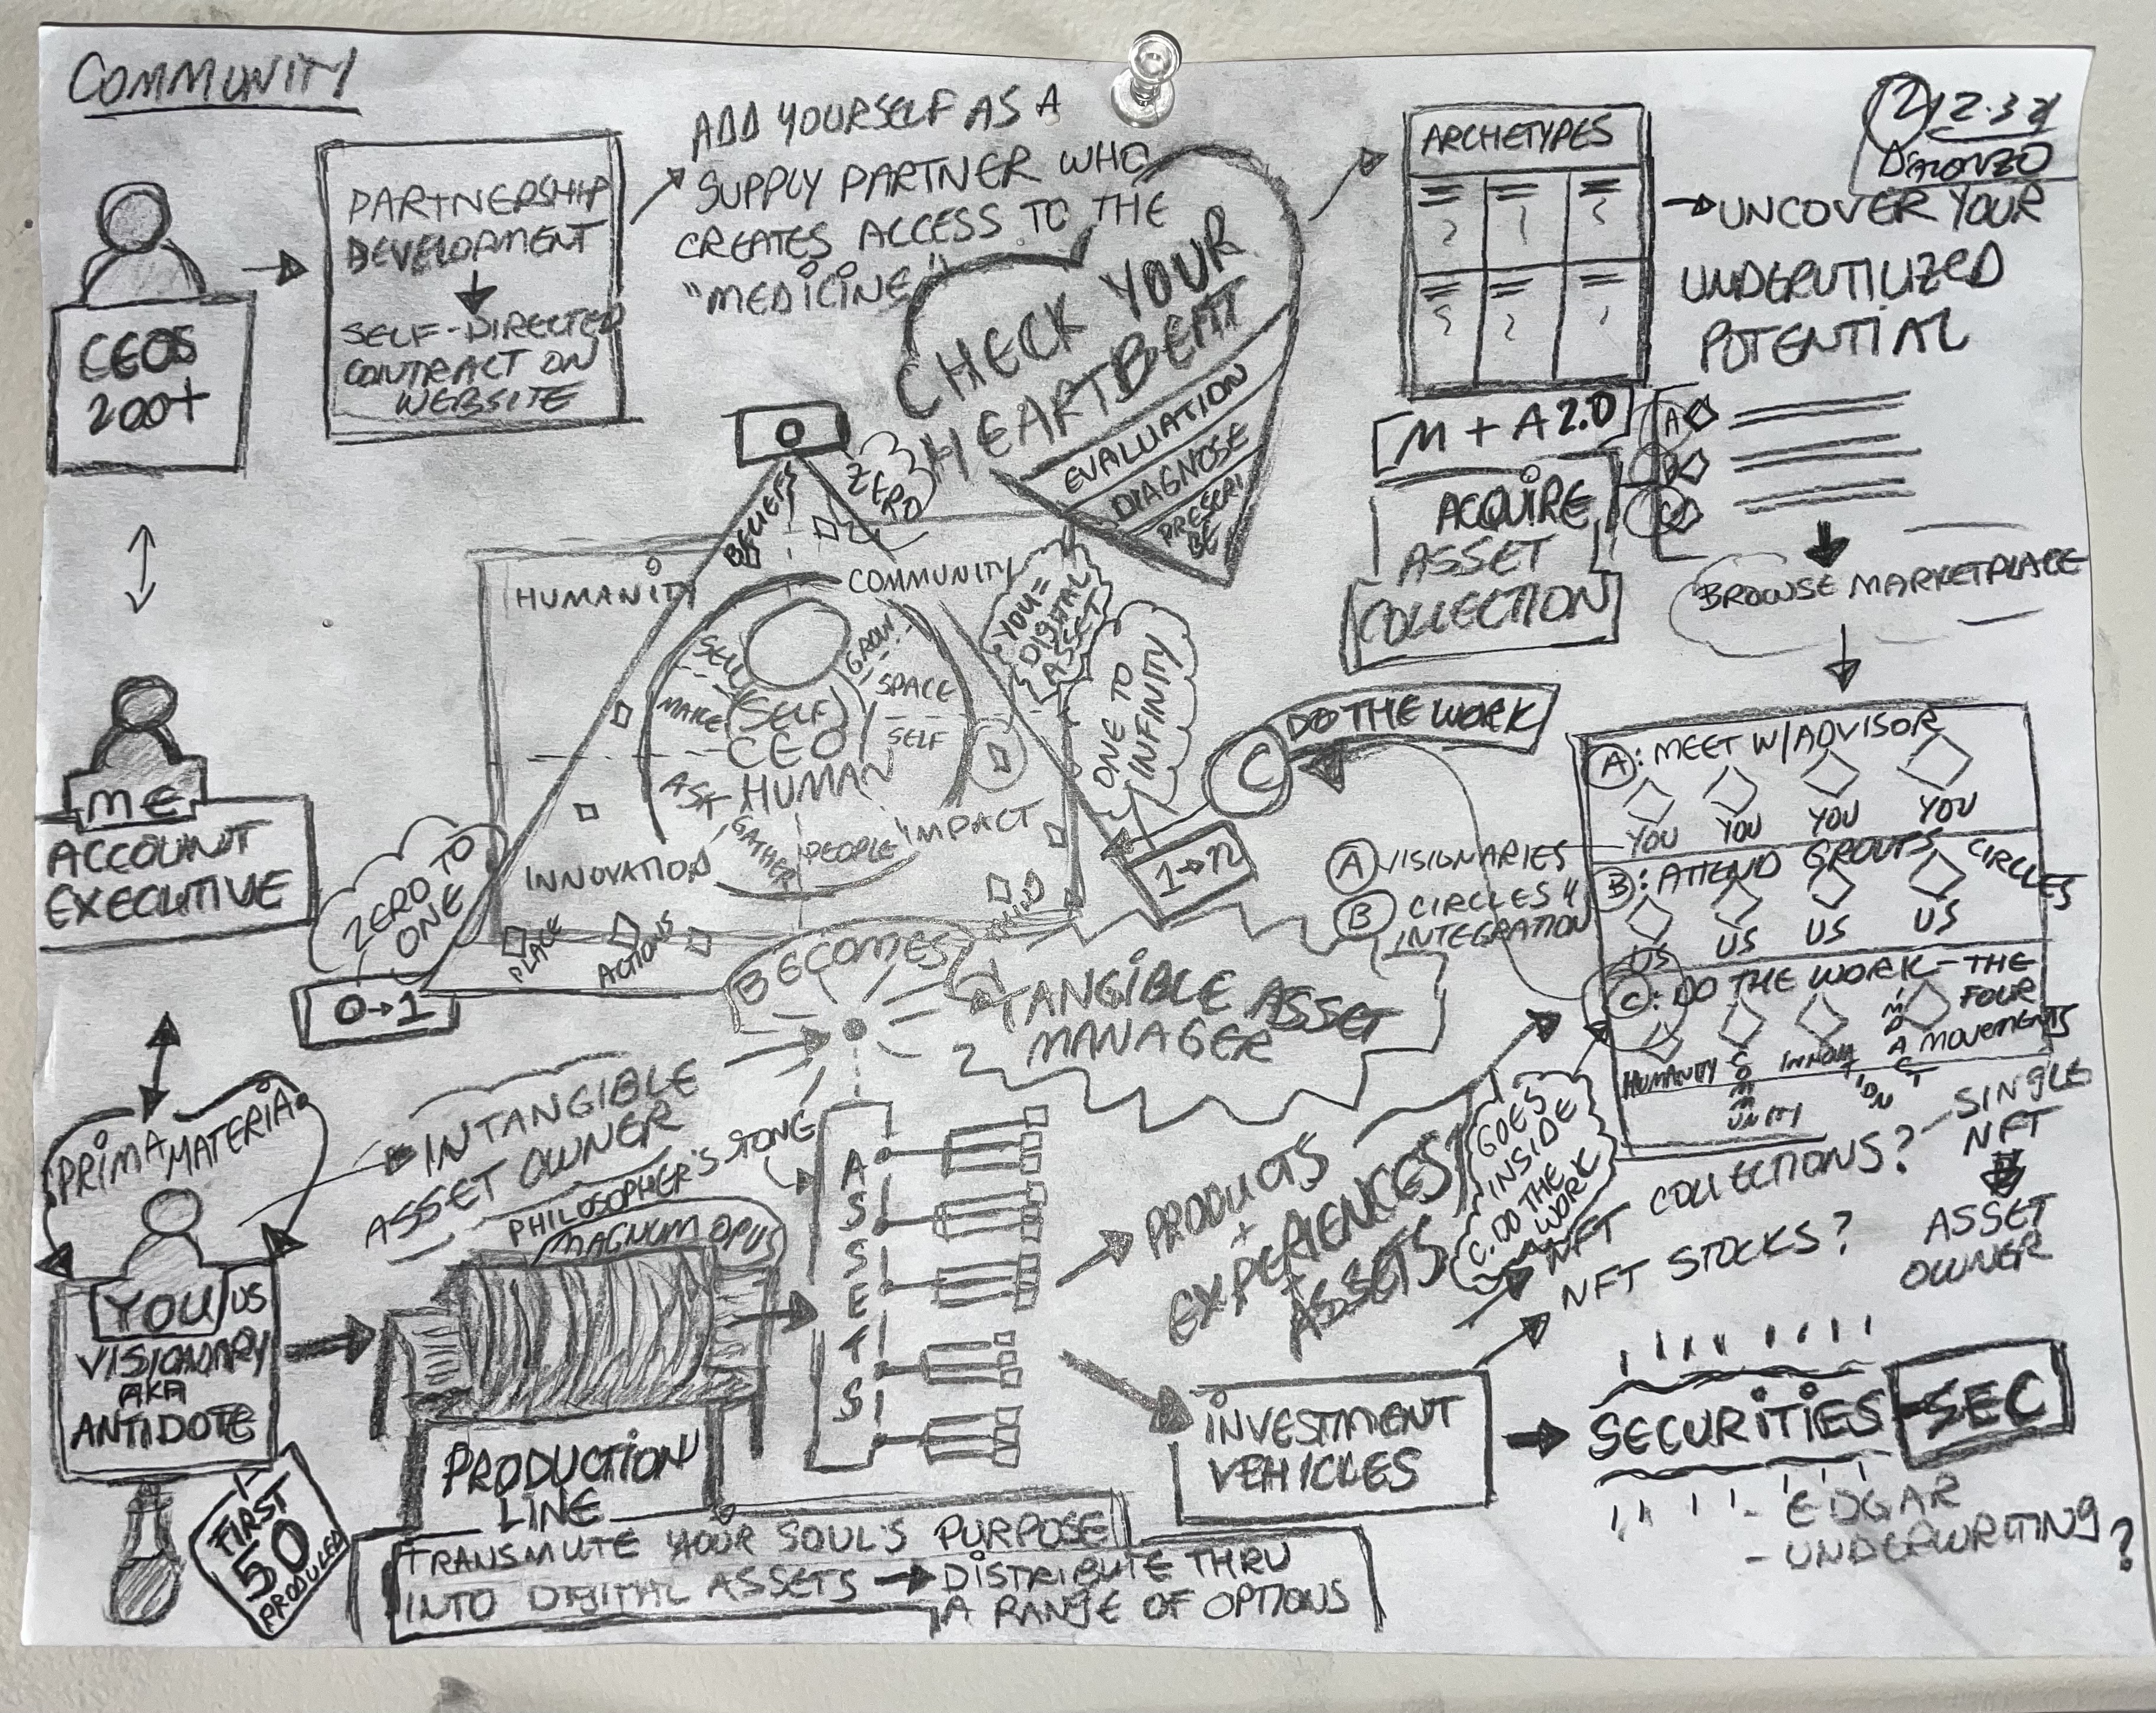 COMMUNITY
CEOS
200+
PARTNERSHIP
DEVELOPMENT
SELF-DIRECTED
CONTRACT ON
WEBSITE
ADD YOURSELF AS A
SUPPLY PARTNER WHO
CREATES ACCESS TO THE
"MEDICINE"
CHECK YOUR
HEARTBEAT
EVALUATION
DIAGNOSE
PRESCRI
BE
ARCHETYPES
UNCOVER YOUR
UNDERUTILIZED
POTENTIAL
M + A 2.0
ACQUIRE
ASSET
COLLECTION
A
B
C
BROWSE MARKETPLACE
O
ZERO
BELIEFS
HUMANITY
COMMUNITY
YOU =
DIGITAL
ASSET
ONE TO
INFINITY
SELL
GROW
SPACE
MAKE
(SELF)
CEO
SELF
HUMAN
ASK
GATHER
PEOPLE
IMPACT
INNOVATION
PLACE
ACTIONS
ME
ACCOUNT
EXECUTIVE
ZERO TO
ONE
0→1
C
DO THE WORK
1→n
A VISIONARIES
B CIRCLES
INTEGRATION
A: MEET W/ADVISOR
YOU YOU YOU YOU
B: ATTEND GROUPS CIRCLES
US US US US
C: DO THE WORK - THE
FOUR
MOVEMENTS
HUMANITY COMMUNITY INNOVATION IMPACT
BECOMES
TANGIBLE ASSET
MANAGER
PRIMA MATERIA
INTANGIBLE
ASSET OWNER
PHILOSOPHER'S STONE
MAGNUM OPUS
YOU US
VISIONARY
AKA
ANTIDOTE
FIRST
50
PRODUCED
PRODUCTION
LINE
ASSETS
PRODUCTS
+
EXPERIENCES
+
ASSETS
GOES
INSIDE
C. DO THE
WORK
NFT COLLECTIONS?
NFT STOCKS?
SINGLE
NFT
ASSET
OWNER
INVESTMENT
VEHICLES
SECURITIES - SEC
- EDGAR
- UNDERWRITING?
TRANSMUTE YOUR SOUL'S PURPOSE
INTO DIGITAL ASSETS → DISTRIBUTE THRU
A RANGE OF OPTIONS